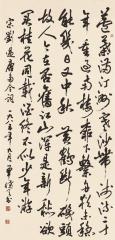 蘆葉滿汀洲寒沙帶淺流二十
年重過南樓柳下繫舟猶未穩
能幾日又中秋黃鶴斷磯頭
故人在否舊江山渾是新愁欲
買桂花同載酒終不似少年游
宋劉過唐多令詞 一九八五年九月